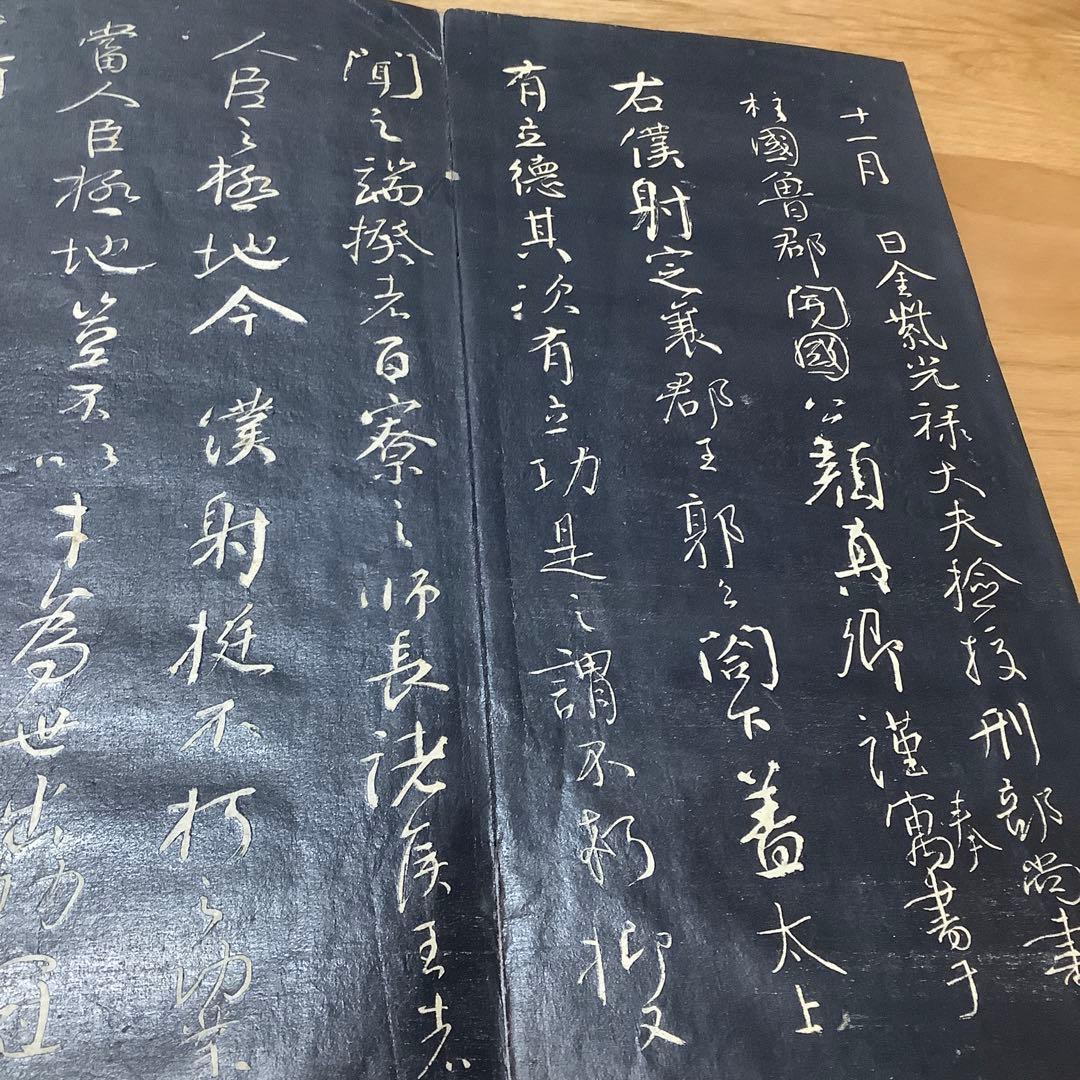 十一月 日金紫光祿大夫檢校刑部尚書
柱國魯郡開國公顏真卿謹奉寓書于
右僕射定襄郡王郭公閤下蓋太上
有立德其次有立功是之謂不朽抑又
聞之端揆者百寮之師長諸侯王者
人臣之極地今僕射挺不朽之功業
當人臣極地豈不以才為世出功冠